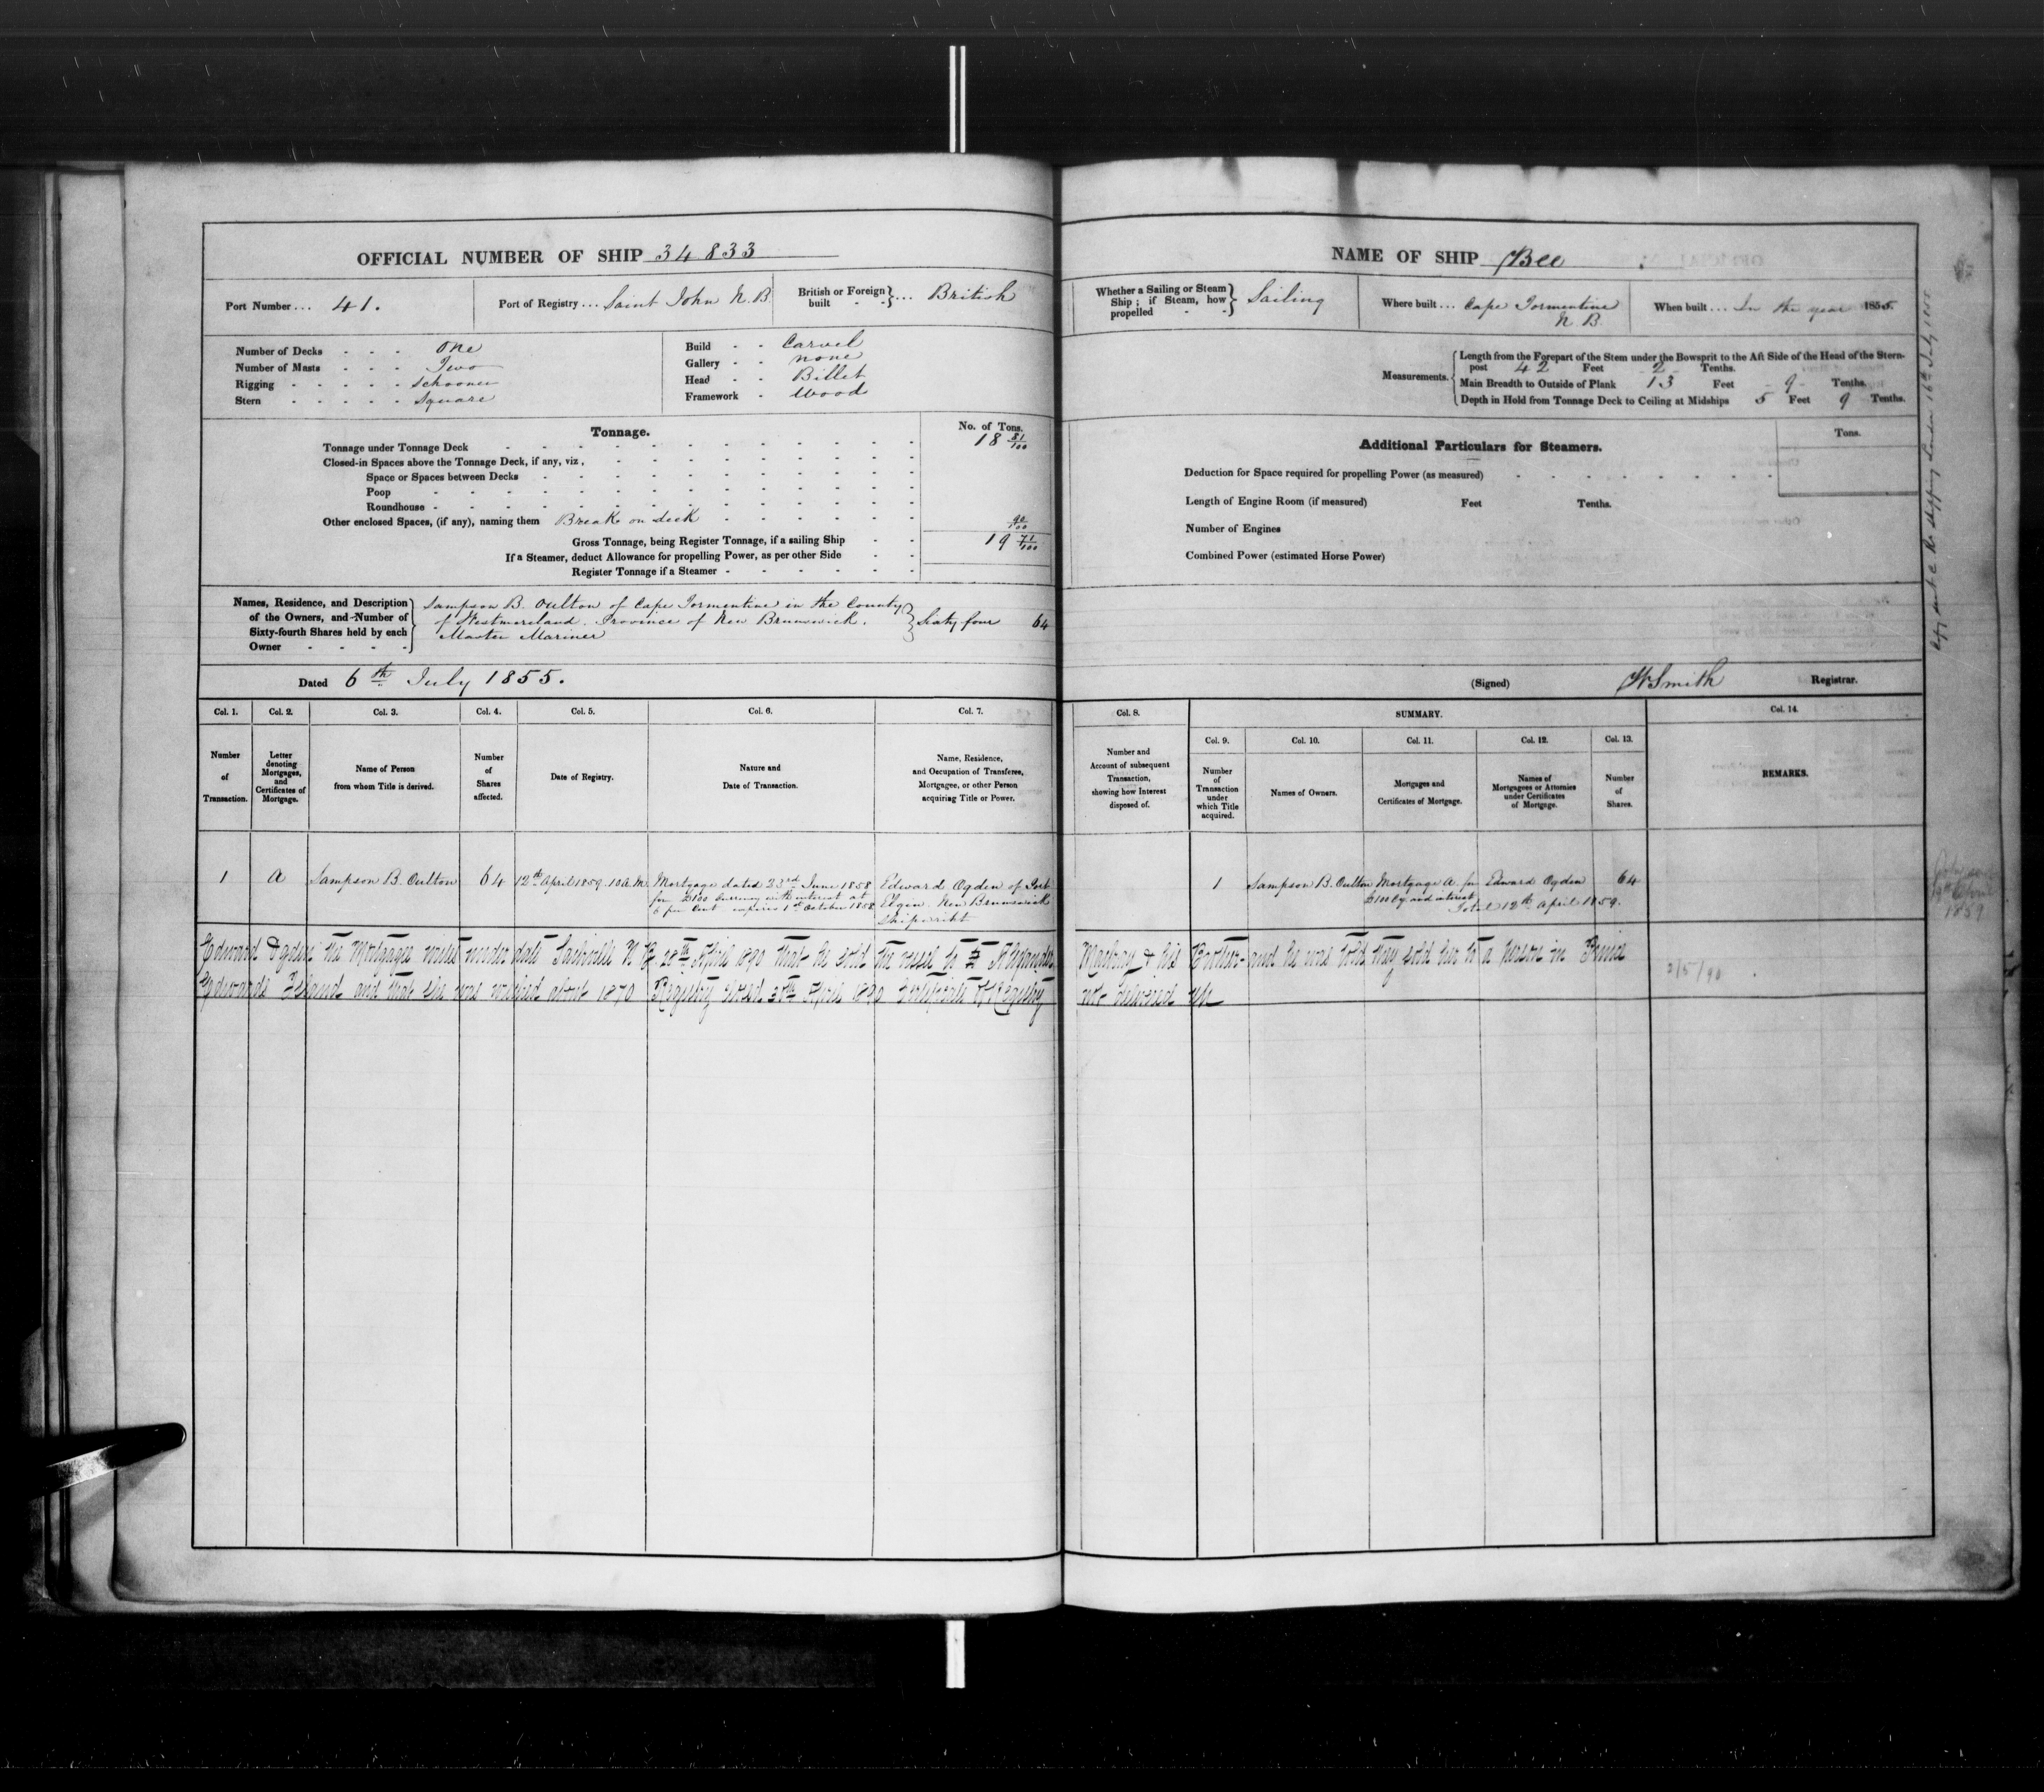 OFFICIAL NUMBER OF SHIP 34833
Port Number ... 41.
Port of Registry ... Saint John N.B
British or Foreign built } ... British
Number of Decks - - - One
Number of Masts - - - Two
Rigging - - - - - Schooner
Stern - - - - - Square
Build - - Carvel
Gallery - - none
Head - - Billet
Framework - Wood
Tonnage.
No. of Tons.
Tonnage under Tonnage Deck 18 81/100
Closed-in Spaces above the Tonnage Deck, if any, viz,
Space or Spaces between Decks
Poop
Roundhouse
Other enclosed Spaces, (if any), naming them Break on deck 90/100
Gross Tonnage, being Register Tonnage, if a sailing Ship 19 71/100
If a Steamer, deduct Allowance for propelling Power, as per other Side
Register Tonnage if a Steamer
Names, Residence, and Description of the Owners, and Number of Sixty-fourth Shares held by each Owner
Sampson B. Oulton of Cape Tormentine in the County
of Westmoreland. Province of New Brunswick. } Sixty four 64
Master Mariner
Dated 6th July 1855.
NAME OF SHIP Bee
Whether a Sailing or Steam Ship; if Steam, how propelled } Sailing
Where built ... Cape Tormentine N B
When built ... In the year 1855
Measurements.
Length from the Forepart of the Stem under the Bowsprit to the Aft Side of the Head of the Stern-
post 42 Feet 2 Tenths.
Main Breadth to Outside of Plank 13 Feet 9 Tenths.
Depth in Hold from Tonnage Deck to Ceiling at Midships 5 Feet 9 Tenths.
Additional Particulars for Steamers.
Tons.
Deduction for Space required for propelling Power (as measured)
Length of Engine Room (if measured) Feet Tenths.
Number of Engines
Combined Power (estimated Horse Power)
(Signed) W Smith Registrar.
Col. 1. Col. 2. Col. 3. Col. 4. Col. 5. Col. 6. Col. 7.
Number of Transaction.
Letter denoting Mortgages, and Certificates of Mortgage.
Name of Person from whom Title is derived.
Number of Shares affected.
Date of Registry.
Nature and Date of Transaction.
Name, Residence, and Occupation of Transferee, Mortgagee, or other Person acquiring Title or Power.
Col. 8.
Number and Account of subsequent Transaction, showing how Interest disposed of.
SUMMARY.
Col. 9. Col. 10. Col. 11. Col. 12. Col. 13.
Number of Transaction under which Title acquired.
Names of Owners.
Mortgages and Certificates of Mortgage.
Names of Mortgagees or Attornies under Certificates of Mortgage.
Number of Shares.
Col. 14.
REMARKS.
1 A Sampson B. Oulton 64 12th April 1859. 10 A.M.
Mortgage dated 23rd June 1858
for £100 Currency with interest at
6 per Cent expires 1st October 1858
Edward Ogden of Port
Elgin. New Brunswick
Shipwright
1 Sampson B. Oulton Mortgage A. for £100 Cy. and interest Edward Ogden 64
Total 12th April 1859.
Edward Ogden the Mortgagee writes under date Sackville N B 28th April 1890 that he sold the vessel to Alexander Mackay & his Brother and he was told they sold her to a person in Prince
Edwards Island and that she was wrecked about 1870 Registry closed 30th April 1890 Certificate of Registry not delivered up
2/5/90
1859